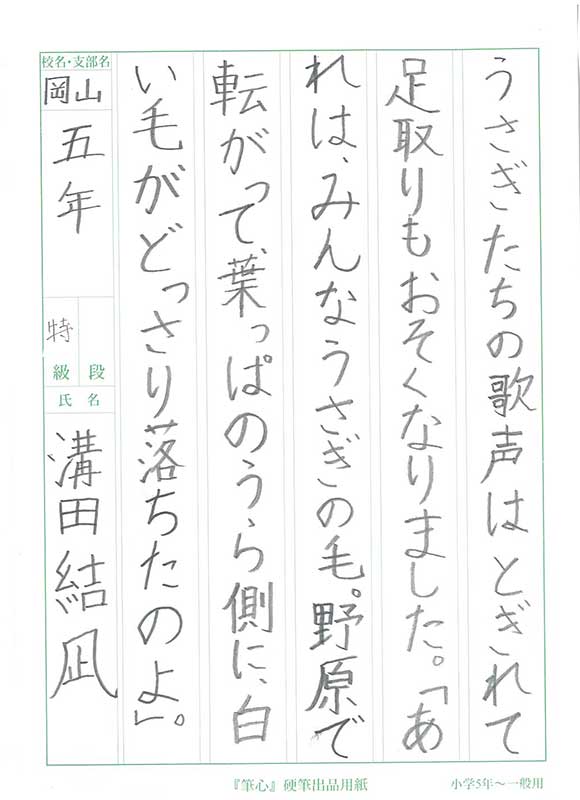 うさぎたちの歌声はとぎれて
足取りもおそくなりました。「あ
れは、みんなうさぎの毛。野原で
転がって、葉っぱのうら側に、白
い毛がどっさり落ちたのよ」。
校名・支部名
岡山
五年
特
級 段
氏名
溝田結凪
『筆心』硬筆出品用紙
小学5年～一般用